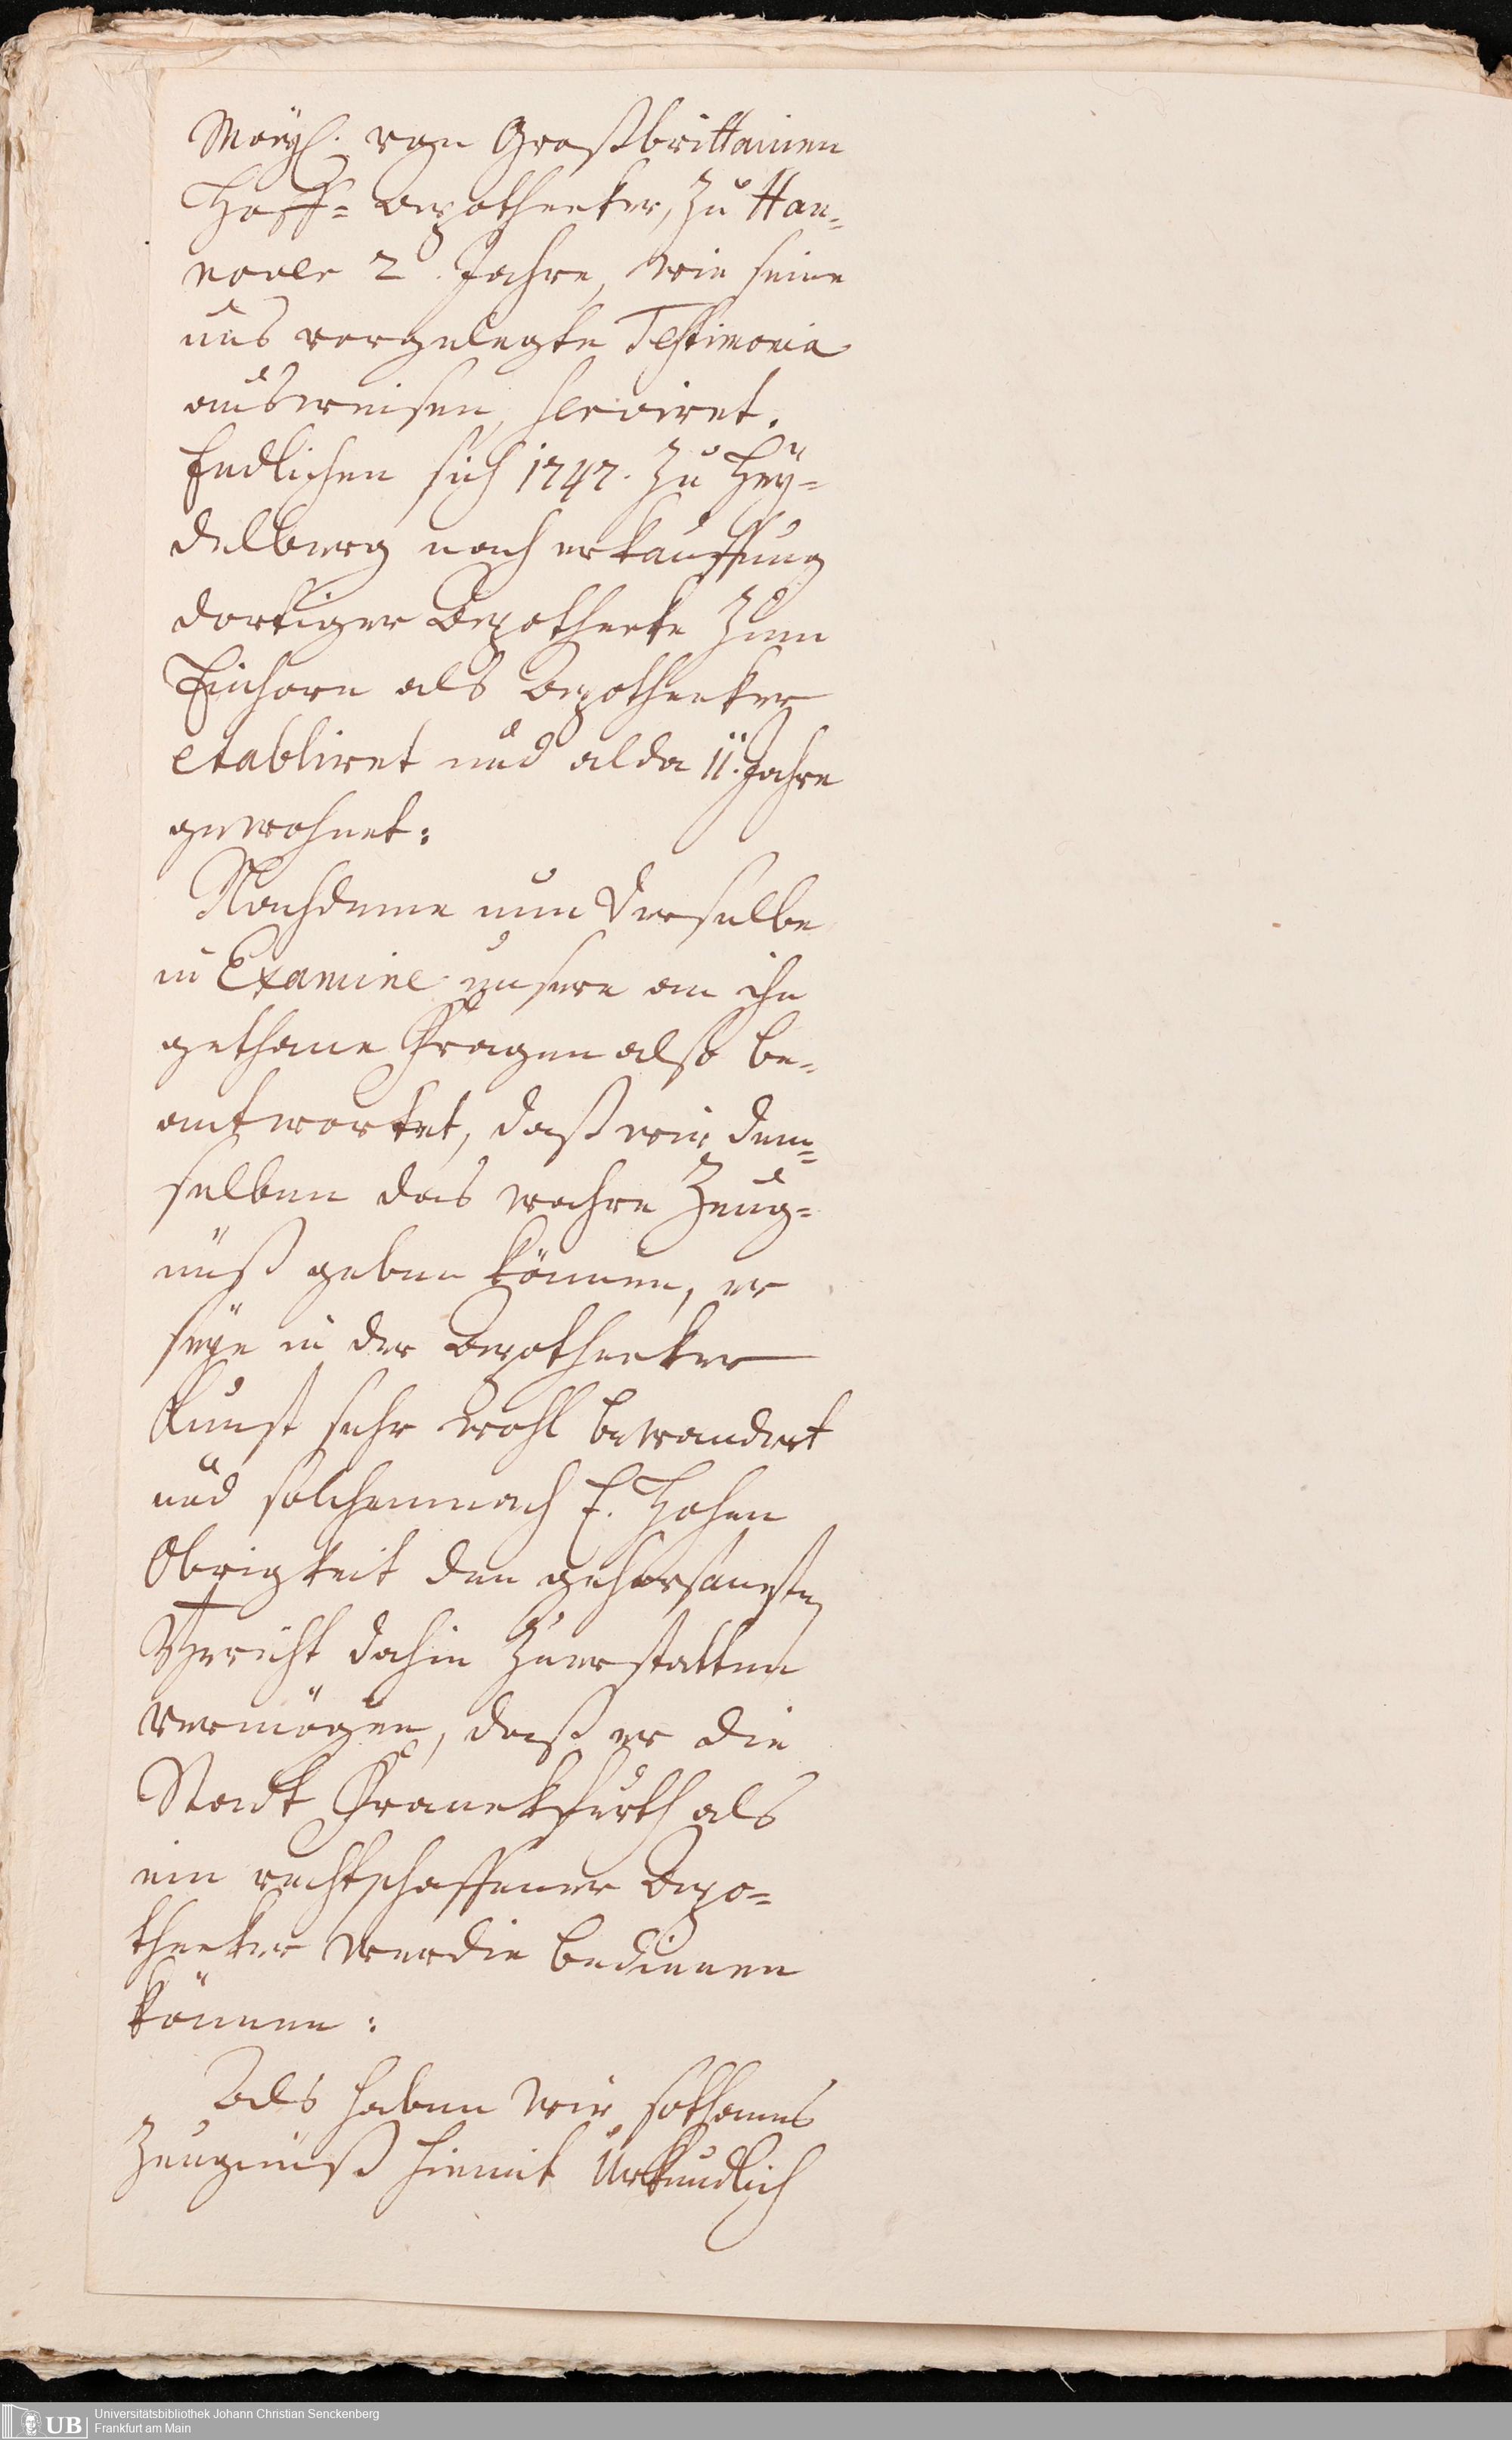 Mayt. von Großbrittainien
Hoff= Apotheeker, zu Han=
nover 2. Jahre, wie seine
uns vorgelegte Testimonia
ausweisen, serviret.
Endlichen sich 1747. zu Hey=
delberg nach erkauffung
dortiger Apotheeke zum
Einhorn als Apotheeker
etabliret und alda 11. Jahre
gewohnet:
Nachdeme nun Derselbe
in Examine unsere an ihn
gethane Fragen also be=
antwortet, daß wir dem=
selben das wahre Zeug=
nüß geben können, er
seye in der Apotheeker
Kunst sehr wohl bewandert
und solchemnach E. Hohen
Obrigkeit den gehorsamsten
Bericht dahin zuerstatten
vermögen, daß er die
Stadt Franckfurth als
ein rechtschaffener Apo=
theeker werde bedienen
können:
Als haben wir sothanes
Zeugnüß hiemit Urkundlich
UB Universitätsbibliothek Johann Christian Senckenberg
Frankfurt am Main